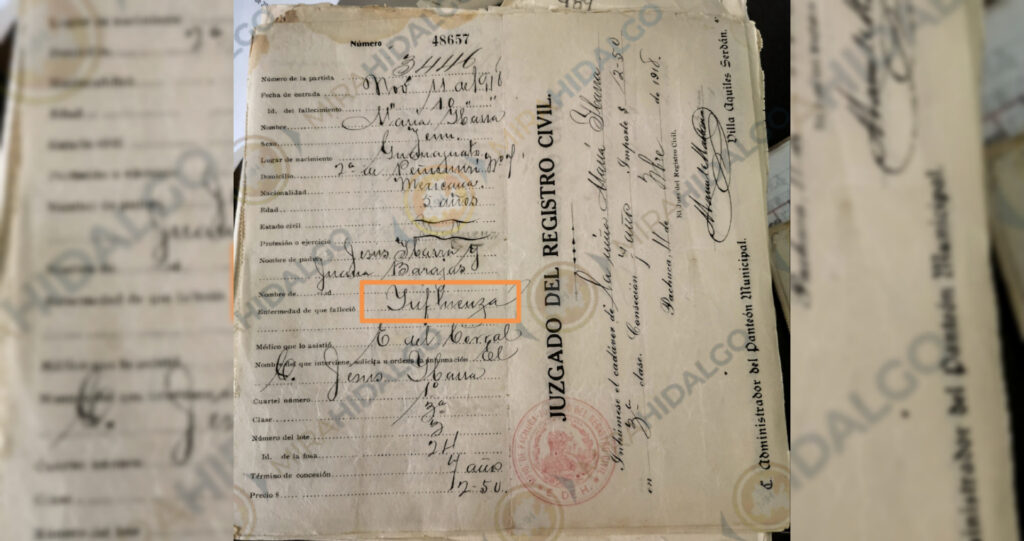 Número 48657
Número de la partida 34416
Fecha de entrada Nov 11 de 1918
Id. del fallecimiento " 10 " "
Nombre María Ibarra
Sexo Fem.
Lugar de nacimiento Guanajuato
Domicilio 2ª de
Nacionalidad Mexicana
Edad 5 años
Estado civil
Profesión o ejercicio
Nombre de padre Jesús Ibarra y
Barajas
Nombre de
Enfermedad de que falleció Influenza
Médico que lo asistió E. del
Nombre del que interviene, solicita u ordena la inhumación El
C. Jesus Ibarra
Cuartel número 1º
Clase 3ª
Número del lote 3
Id. de la fosa 24
Término de concesión 7 años
Precio $ 2-50
JUZGADO DEL REGISTRO CIVIL.
Inhúmese el cadáver de la niña María Ibarra
en 3ª clase. Concesión 7 años Importe $ 2-50
Pachuca, 11 de Nbre de 1918
El Juez del Registro Civil.
Villa Aquiles Serdán.
C. Administrador del Panteón Municipal.
MIRAHIDALGO